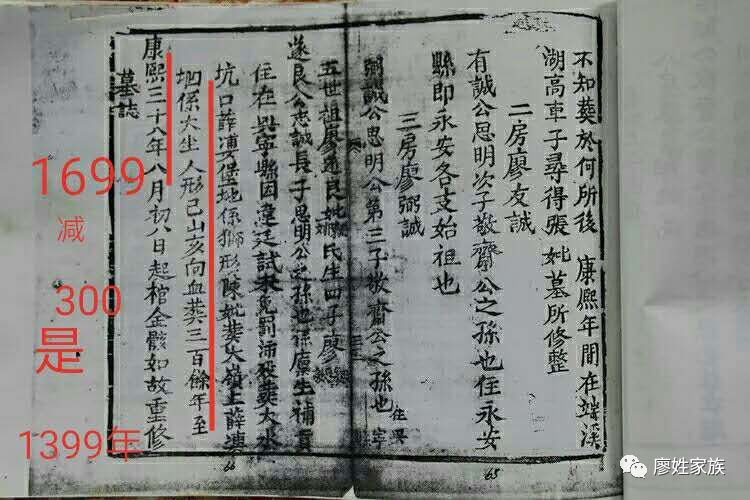 不知葬於何所後 康熙年間在端溪
湖高車子尋得張 妣墓所修整
二房廖友誠
有誠公思明次子敬齋公之孫也住永安
縣即永安各支始祖也
三房廖弼誠
弼誠公思明公第三子敬齋公之孫也住興寧
五世祖廖邁良妣 氏生四子廖
遂良公志誠長子思明公之孫也 廩生補貢
住在興寧縣因違廷試未 罰 葬大水
坑口薛 堡地係獅形陳妣葬大嶺上薛
地係大坐人形己山亥向血葬三百餘年至
康熙三十八年八月初八日起棺金骸如故重修
墓誌
65
1699
减
300
是
1399年
廖姓家族